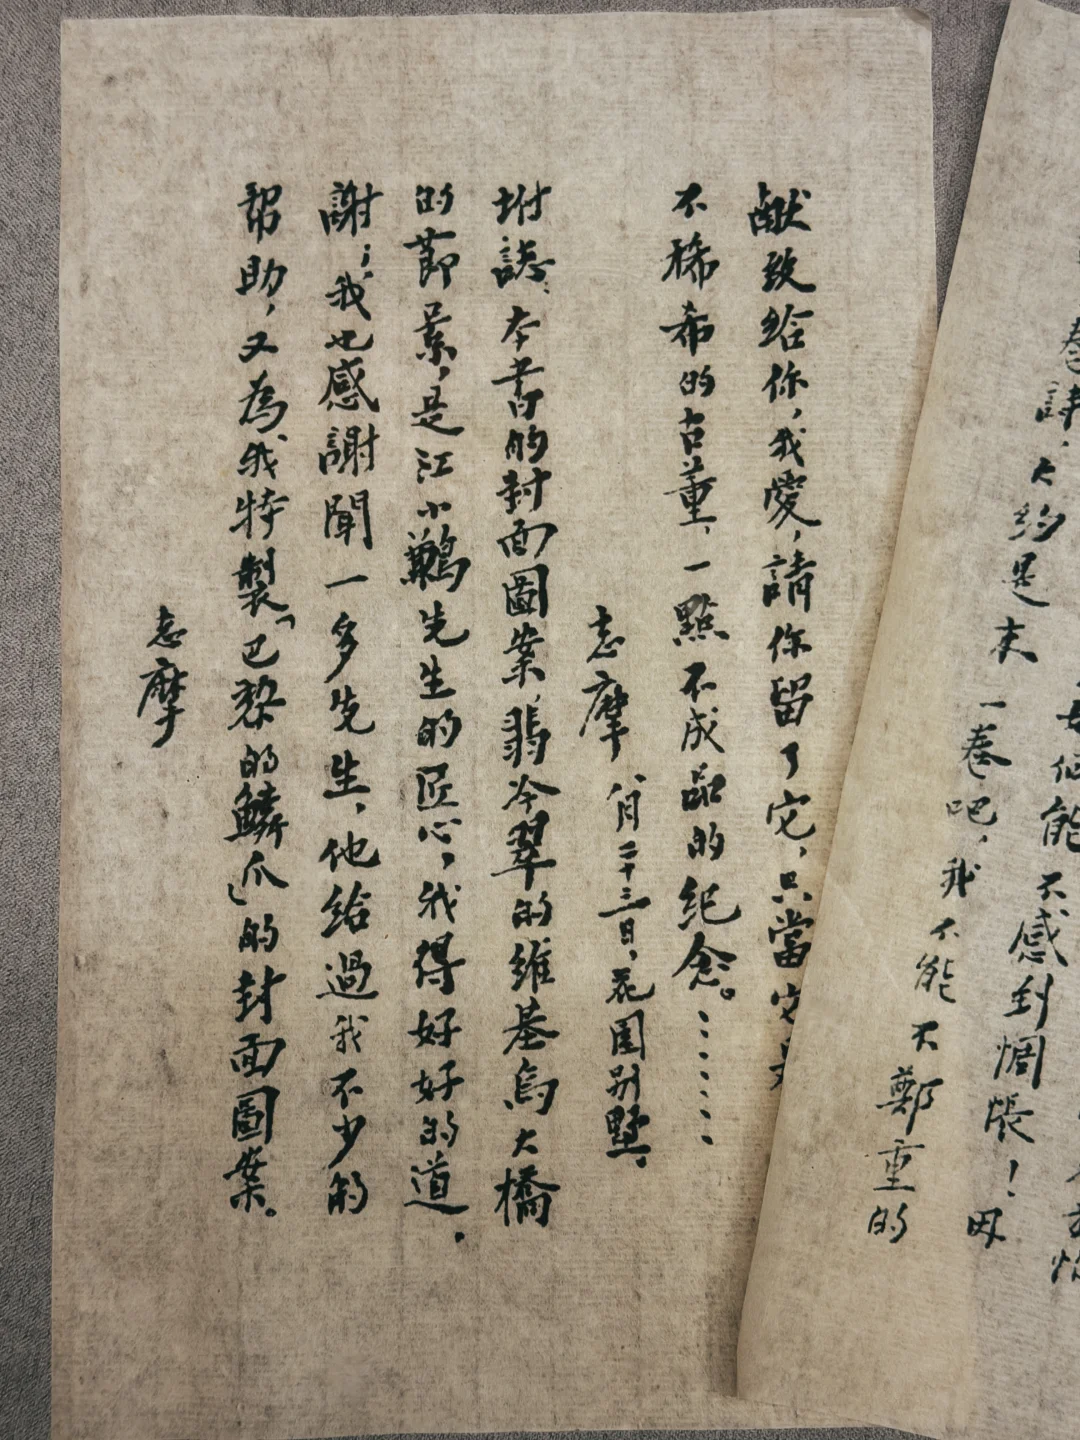 卷詩，大約是末一卷吧，我不能不鄭重的
獻致給你，我愛，請你留了它，只當它是
不稀希的古董，一點不成品的紀念。……
志摩 八月二十三日，花園別墅。
坿誌：本書的封面圖案，翡冷翠的維基烏大橋
的節景，是江小鶼先生的匠心，我得好好的道
謝；我也感謝聞一多先生，他給過我不少的
幫助，又為我特製「巴黎的鱗爪」的封面圖案。
志摩